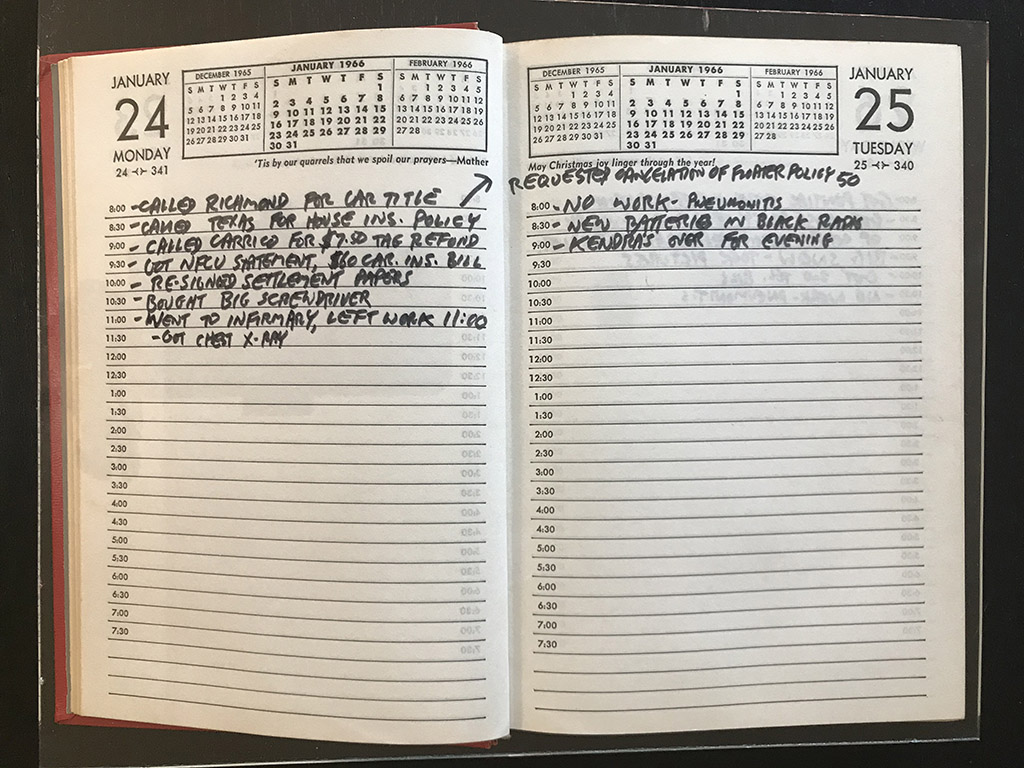 JANUARY
24
MONDAY
24 -< >- 341
DECEMBER 1965
S M T W T F S
1 2 3 4
5 6 7 8 9 10 11
12 13 14 15 16 17 18
19 20 21 22 23 24 25
26 27 28 29 30 31
JANUARY 1966
S M T W T F S
1
2 3 4 5 6 7 8
9 10 11 12 13 14 15
16 17 18 19 20 21 22
23 24 25 26 27 28 29
30 31
FEBRUARY 1966
S M T W T F S
1 2 3 4 5
6 7 8 9 10 11 12
13 14 15 16 17 18 19
20 21 22 23 24 25 26
27 28
'Tis by our quarrels that we spoil our prayers—Mather
8:00 - CALLED RICHMOND FOR CAR TITLE
8:30 - CALLED TEXAS FOR HOUSE INS. POLICY
9:00 - CALLED CARRICO FOR $7.50 TAG REFUND
9:30 - GOT NFCU STATEMENT, $60 CAR. INS. BILL
10:00 - RE-SIGNED SETTLEMENT PAPERS
10:30 - BOUGHT BIG SCREWDRIVER
11:00 - WENT TO INFIRMARY, LEFT WORK 11:00
11:30 - GOT CHEST X-RAY
12:00
12:30
1:00
1:30
2:00
2:30
3:00
3:30
4:00
4:30
5:00
5:30
6:00
6:30
7:00
7:30
DECEMBER 1965
S M T W T F S
1 2 3 4
5 6 7 8 9 10 11
12 13 14 15 16 17 18
19 20 21 22 23 24 25
26 27 28 29 30 31
JANUARY 1966
S M T W T F S
1
2 3 4 5 6 7 8
9 10 11 12 13 14 15
16 17 18 19 20 21 22
23 24 25 26 27 28 29
30 31
FEBRUARY 1966
S M T W T F S
1 2 3 4 5
6 7 8 9 10 11 12
13 14 15 16 17 18 19
20 21 22 23 24 25 26
27 28
JANUARY
25
TUESDAY
25 -< >- 340
May Christmas joy linger through the year!
REQUESTED CANCELATION OF FLOATER POLICY 50
8:00 - NO WORK - PNEUMONITIS
8:30 - NEW BATTERIES IN BLACK RADIO
9:00 - KENDRAS OVER FOR EVENING
9:30
10:00
10:30
11:00
11:30
12:00
12:30
1:00
1:30
2:00
2:30
3:00
3:30
4:00
4:30
5:00
5:30
6:00
6:30
7:00
7:30